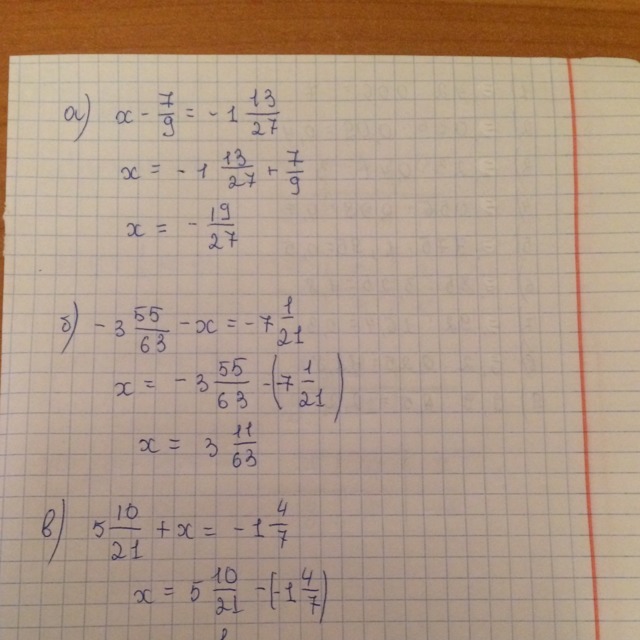 а) x - 7/9 = - 1 13/27
x = - 1 13/27 + 7/9
x = - 19/27
б) - 3 55/63 - x = - 7 1/21
x = - 3 55/63 - (-7 1/21)
x = 3 11/63
в) 5 10/21 + x = - 1 4/7
x = 5 10/21 - (-1 4/7)